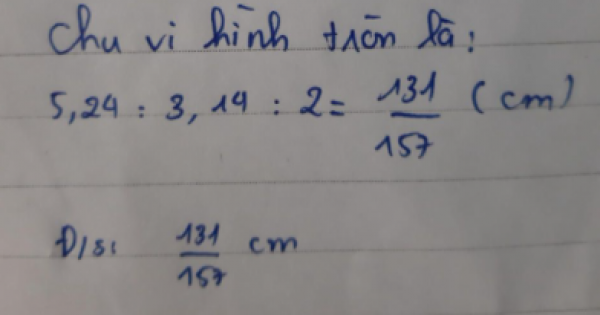 Chu vi hình tròn là:
5,24 : 3,14 : 2 = 131/157 (cm)
Đ/s: 131/157 cm